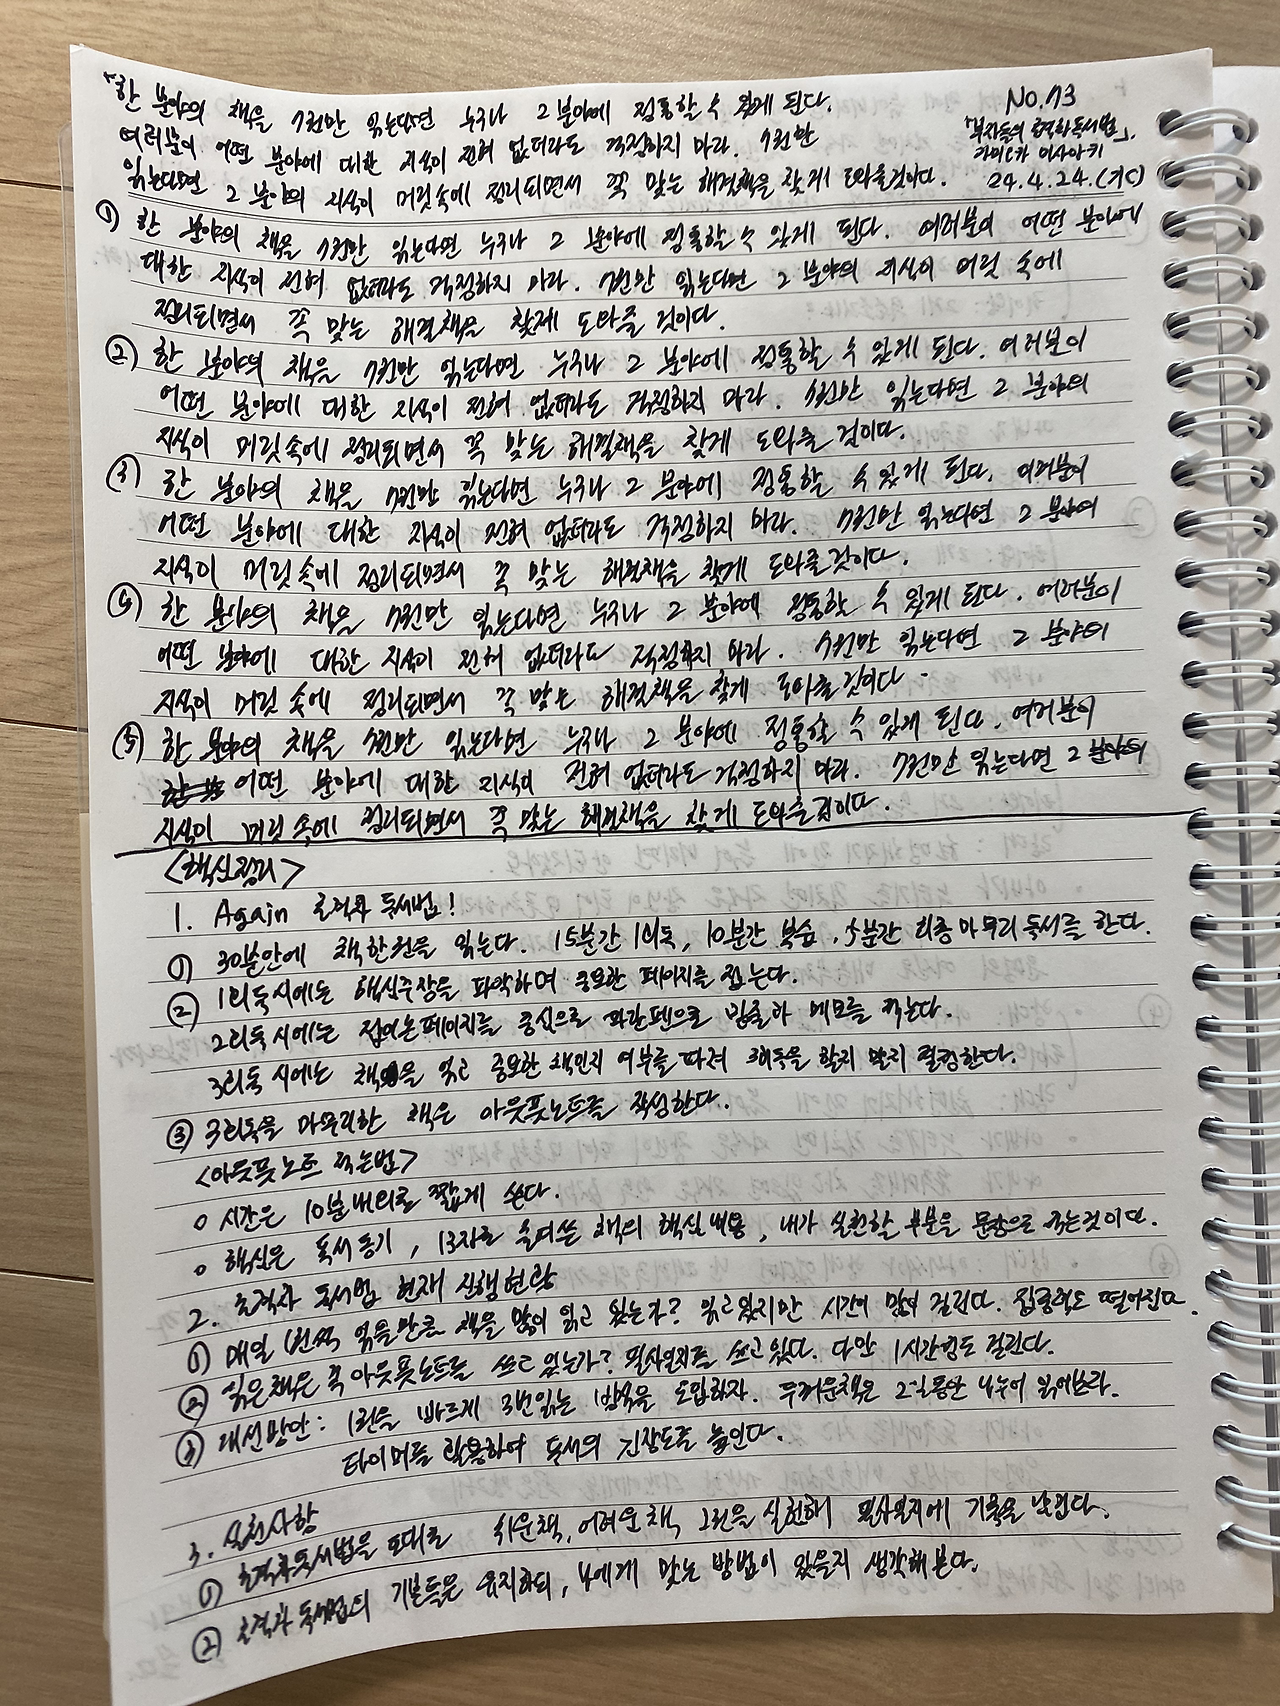 "한 분야의 책을 7권만 읽는다면 누구나 그 분야에 정통할 수 있게 된다.
No.73
여러분이 어떤 분야에 대한 지식이 전혀 없더라도 걱정하지 마라. 7권만
「부자들의 초격차 독서법」,
읽는다면 그 분야의 지식이 머릿속에 정리되면서 꼭 맞는 해결책을 찾게 도와줄것이다.
24.4.24.(
① 한 분야의 책을 7권만 읽는다면 누구나 그 분야에 정통할 수 있게 된다. 여러분이 어떤 분야에
대한 지식이 전혀 없더라도 걱정하지 마라. 7권만 읽는다면 그 분야의 지식이 머릿 속에
정리되면서 꼭 맞는 해결책을 찾게 도와줄 것이다.
② 한 분야의 책을 7권만 읽는다면 누구나 그 분야에 정통할 수 있게 된다. 여러분이
어떤 분야에 대한 지식이 전혀 없더라도 걱정하지 마라. 7권만 읽는다면 그 분야의
지식이 머릿속에 정리되면서 꼭 맞는 해결책을 찾게 도와줄 것이다.
③ 한 분야의 책을 7권만 읽는다면 누구나 그 분야에 정통할 수 있게 된다. 여러분이
어떤 분야에 대한 지식이 전혀 없더라도 걱정하지 마라. 7권만 읽는다면 그 분야의
지식이 머릿속에 정리되면서 꼭 맞는 해결책을 찾게 도와줄것이다.
④ 한 분야의 책을 7권만 읽는다면 누구나 그 분야에 정통할 수 있게 된다. 여러분이
어떤 분야에 대한 지식이 전혀 없더라도 걱정하지 마라. 7권만 읽는다면 그 분야의
지식이 머릿 속에 정리되면서 꼭 맞는 해결책을 찾게 도와줄것이다.
⑤ 한 분야의 책을 7권만 읽는다면 누구나 그 분야에 정통할 수 있게 된다. 여러분이
어떤 분야에 대한 지식이 전혀 없더라도 걱정하지 마라. 7권만 읽는다면 그 분야의
지식이 머릿속에 정리되면서 꼭 맞는 해결책을 찾게 도와줄것이다.
<핵심정리>
1. Again 초격차 독서법!
① 30분안에 책한권을 읽는다. 15분간 1회독, 10분간 복습, 5분간 최종마무리독서를 한다.
② 1회독시에는 핵심주장을 파악하며 중요한 페이지를 접는다.
2회독시에는 접어논페이지를 중심으로 파란펜으로 밑줄과 메모를 적는다.
3회독 시에는 책을 읽고 중요한 책인지 여부를 따져 3회독을 할지 말지 결정한다.
③ 3회독을 마무리한 책은 아웃풋노트를 작성한다.
<아웃풋노트 적는법>
○ 시간은 10분내외로 짧게 쓴다.
○ 핵심은 독서동기, 13자로 줄여쓴 책의 핵심내용, 내가 실천할 부분을 문장으로 적는것이다.
2. 초격차 독서법 현재 실행현황
① 매일 1번씩 읽을만큼 책을 많이 읽고 있는가? 읽고있지만 시간이 많이 걸린다. 집중력도 떨어진다.
② 읽은책은 꼭 아웃풋노트를 쓰고 있는가? 필사일지를 쓰고있다. 다만 1시간정도 걸린다.
③ 개선방안: 1권을 빠르게 3번읽는 방법을 도입하자. 두꺼운책은 2일동안 나누어 읽어보라.
타이머를 활용하여 독서의 긴장도를 높인다.
3. 실천사항
① 초격차독서법을 토대로 쉬운책, 어려운책, 2권을 실천해 필사일지에 기록을 남긴다.
② 초격차 독서법의 기본틀은 유지하되, 나에게 맞는 방법이 있을지 생각해본다.